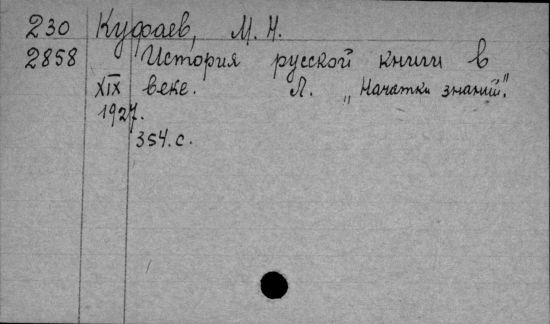 230 Куфаев, М. Н.
2858 История русской книги в
XIX веке. Л. „Начатки знаний".
1927.
354.с.